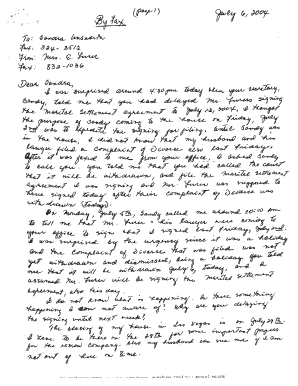 (page 1)
July 6, 2004
By Fax
To: Sandra
Fax: 324-2512
From: Mrs. C.
Fax: 832-1036
Dear Sandra,
I was surprised around 4:30pm today when your secretary,
Sandy, told me that you had delayed Mr. signing
the Marital Settlement agreement to July 12, 2004. I thought
the purpose of Sandy coming to the house on Friday, July
2nd was to expedite the signing for filing. Until Sandy was
in the house, I did not know that my husband and his
lawyer filed a Complaint of Divorce last Friday.
After it was faxed to me from your office, I asked Sandy
to call you. You told me that you had called the court
that it will be withdrawn, and file the Marital Settlement
agreement I was signing and Mr. was supposed to
have signed today after their Complaint of Divorce was
withdrawn (today).
On Monday, July 5th, Sandy called me around 10:10 am
to tell me that Mr. and his lawyer were coming to
your office to sign what I signed last Friday, July 2nd.
I was surprised by the urgency since it was a holiday
and the Complaint of Divorce that was filed was not
yet withdrawn and dismissed, being a holiday. You told
me that it will be withdrawn July 6, today, and I
assumed Mr. will be signing the Marital Settlement
agreement, also this day.
I do not know what is happening. Is there something
happening I am not aware of? Why are you delaying
the signing until next week?
The closing of my house in Las Vegas is on July 29th.
I have to be there on the 28th for some important papers
for the escrow company. Also my husband can sue me if I am
not out of here on time.